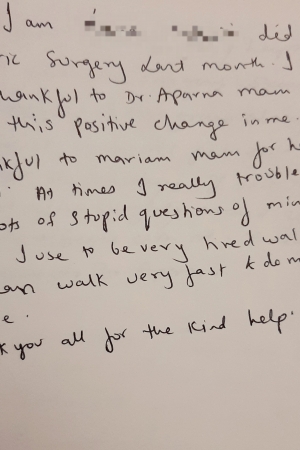 I am did
ric Surgery Last month. I
hankful to Dr. Aparna mam
this positive change in me.
kful to mariam mam for h
At times I really trouble
ots of stupid questions of min
I use to be very hred wal
an walk very fast & do m
e.
k you all for the kind help.